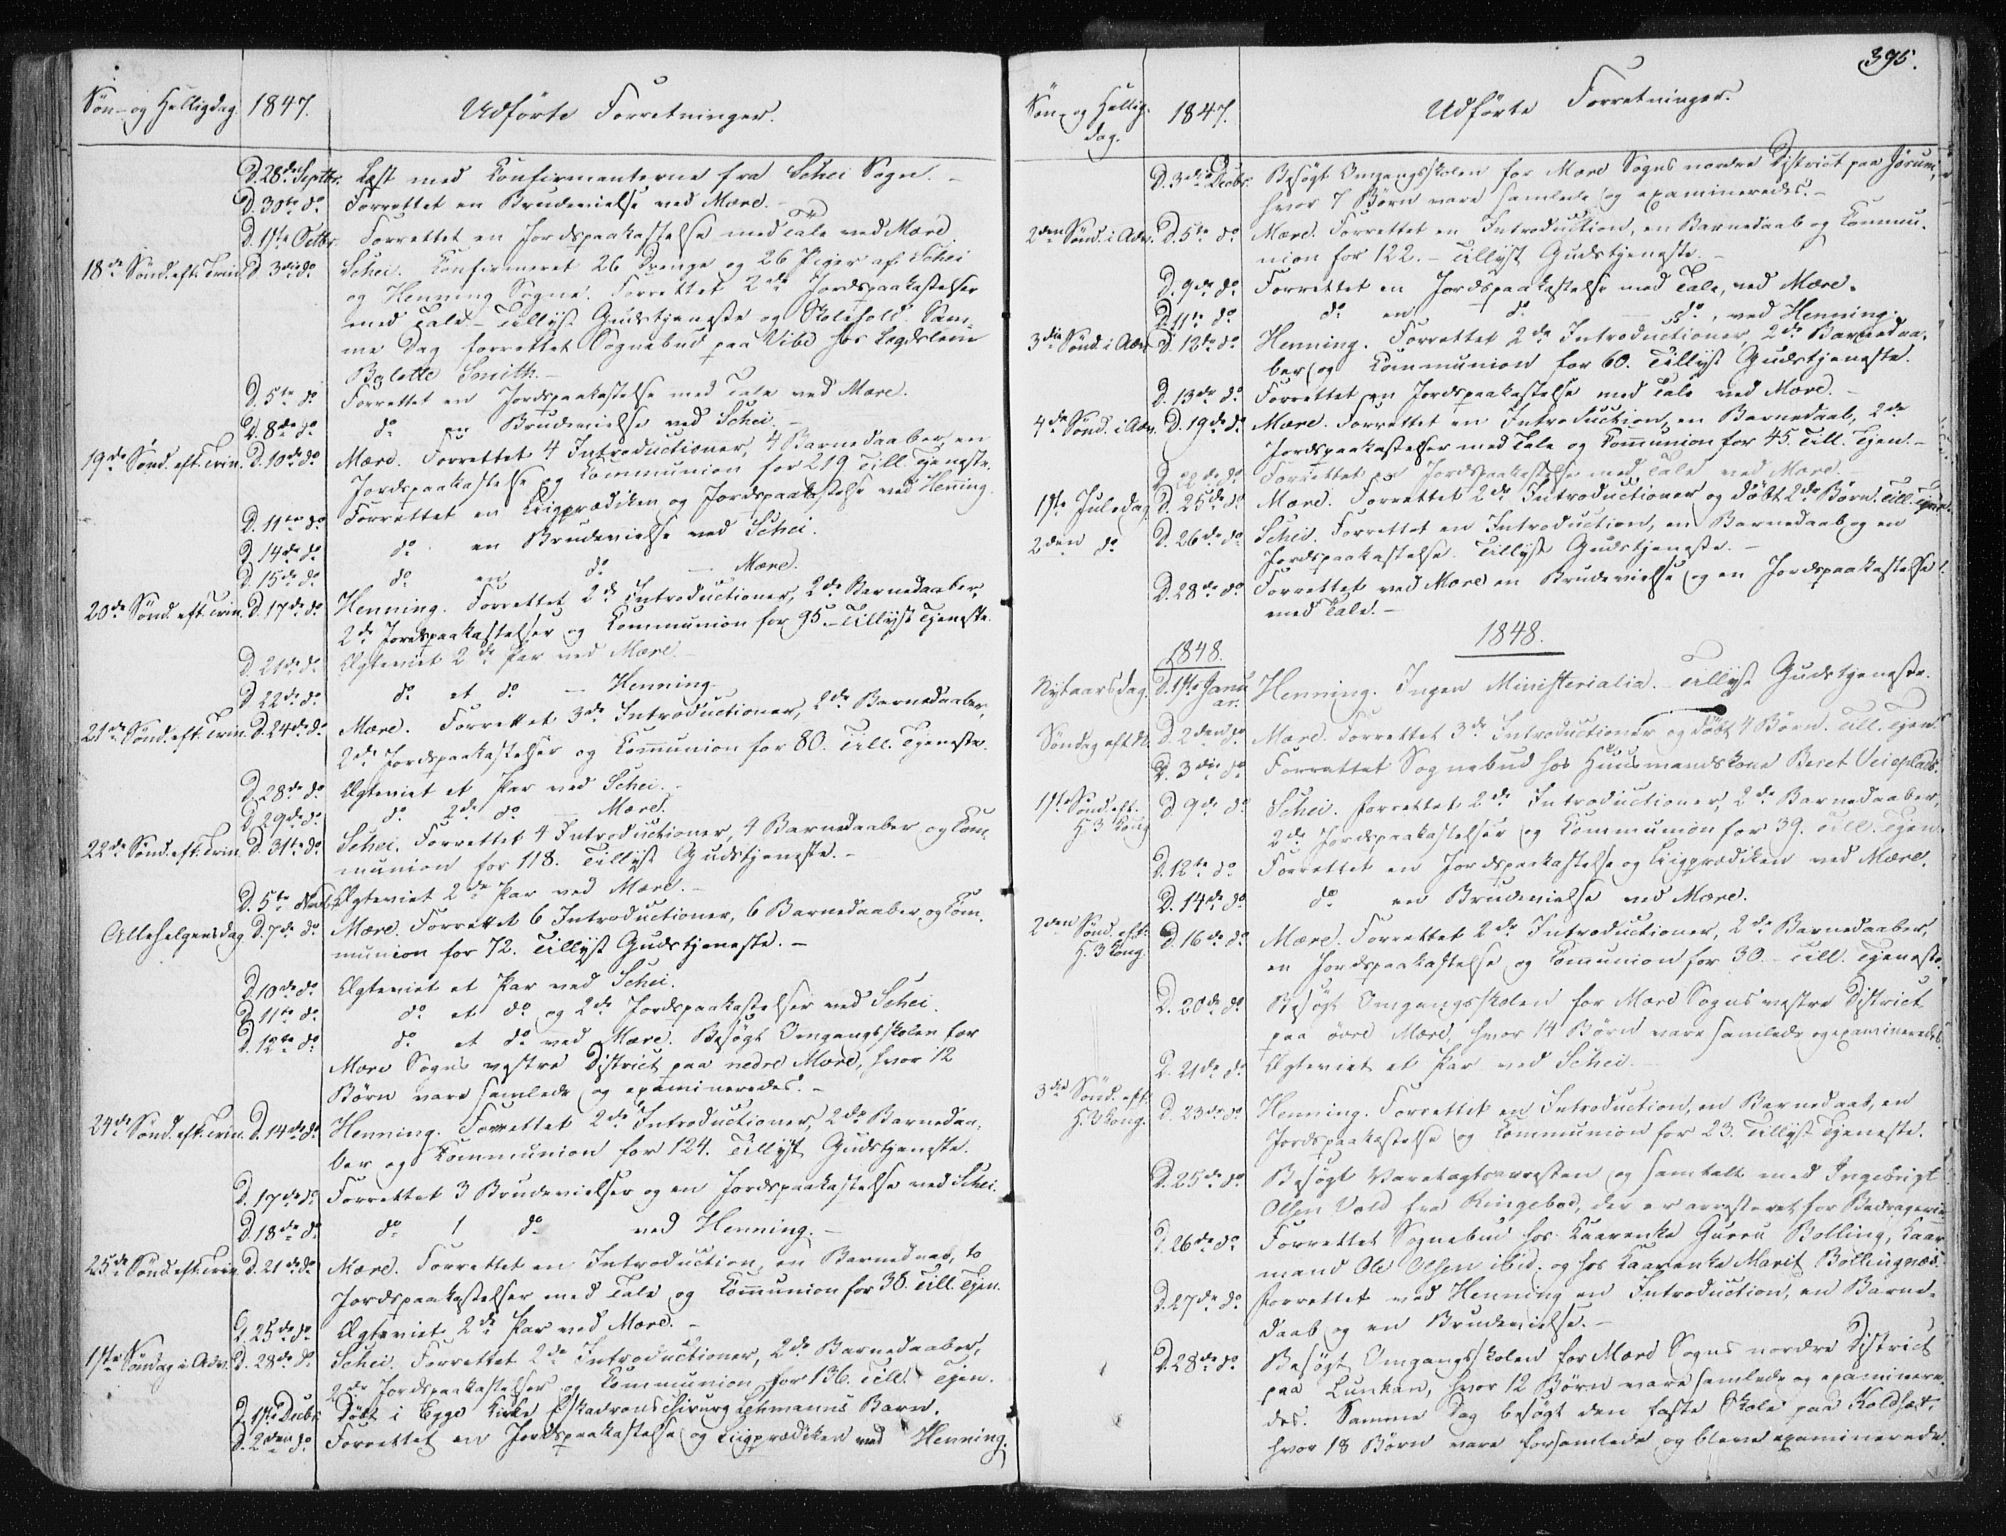 Søn- og Helligdag. 1847. Udførte Forretninger.
D. 28de Septbr. Læst med Konfirmanterne fra Schei Sogn. -
D. 30te do Forrettet en Brudevielse ved Mære. -
D. 1ste Octbr. Forrettet en Jordspaakastelse med Tale ved Mære.
18de Sønd. eft. Trin. D. 3die do Schei. Konfirmeret 26 Drenge og 26 Piger af Schei
og Henning Sogne. Forrettet 2de Jordspaakastelser
med Tale. - Tillyst Gudstjeneste og Skolehold. Sam-
me Dag forrettet Sognebud paa Vibe hos
Smith. -
D. 5te do Forrettet en Jordspaakastelse med Tale ved Mære.
D. 8de do do en Brudevielse ved Schei. -
19de Sønd. eft. Trin. D. 10de do Mære. Forrettet 4 Introductioner, 4 Barnedaaber, en
Jordspaakastelse og Kommunion for 219. Till. Tjeneste.
D. 11te do Forrettet en Liigprædiken og Jordspaakastelse ved Henning.
D. 14de do do en Brudevielse ved Schei.
D. 15de do do en do - Mære.
20de Sønd. eft. Trin. D. 17de do Henning. Forrettet 2de Introductioner, 2de Barnedaaber,
2de Jordspaakastelser og Kommunion for 95. - Tillyst Tjeneste.
D. 21de do Ægteviet 2de Par ved Mære. -
D. 22de do do et do - Henning.
21de Sønd. eft. Trin. D. 24de do Mære. Forrettet 3de Introductioner, 2de Barnedaaber,
2de Jordspaakastelser og Kommunion for 80. Till. Tjeneste.
D. 28de do Ægteviet et Par ved Schei. -
D. 29de do do 2de do - Mære.
22de Sønd. eft. Trin. D. 31te do Schei. Forrettet 4 Introductioner, 4 Barnedaaber og Kom-
munion for 118. Tillyst Gudstjeneste. -
D. 5te Novb. Ægteviet 2de Par ved Mære. -
Allehelgensdag D. 7de do Mære. Forrettet 6 Introductioner, 6 Barnedaaber, og Kom-
munion for 72. Tillyst Gudstjeneste. -
D. 10de do Ægteviet et Par ved Schei.
D. 11te do do et do og 2de Jordspaakastelser ved Schei.
D. 12te do do et do ved Mære. Besøgt Omgangsskolen for
Mære Sogns vestre District paa nedre Mære, hvor 12
Børn vare samlede og examineredes. -
24de Sønd. eft. Trin. D. 14de do Henning. Forrettet 2de Introductioner, 2de Barnedaa-
ber og Kommunion for 124. Tillyst Gudstjeneste.
D. 17de do Forrettet 3 Brudevielser og en Jordspaakastelse ved Schei.
D. 18de do do 1 do ved Henning. -
25de Sønd. eft. Trin. D. 21de do Mære. Forrettet en Introduction, en Barnedaab, to
Jordspaakastelser med Tale og Kommunion for 38. Till. Tjen.
D. 25de do Ægteviet 2de Par ved Mære. -
1ste Søndag i Adv. D. 28de do Schei. Forrettet 2de Introductioner, 2de Barnedaaber,
2de Jordspaakastelser og Kommunion for 136. Till. Tjen.
D. 1ste Decbr. Døbt i Egge Kirke Eskadronschirurg Lehmanns Barn.
D. 2den do Forrettet en Jordspaakastelse og Liigprædiken ved Henning.
395.
Søn- og Hellig-
dag. 1847. Udførte Forretninger.
D. 3die Decbr. Besøgt Omgangsskolen for Mære Sogns nordre District paa Jørum,
hvor 7 Børn vare samlede og examineredes. -
2den Sønd. i Adv. D. 5te do Mære. Forrettet en Introduction, en Barnedaab og Kommu-
nion for 122. - Tillyst Gudstjeneste. -
D. 9de do Forrettet en Jordspaakastelse med Tale, ved Mære.
D. 11te do do en do - do, ved Henning. -
3die Sønd. i Adv. D. 12te do Henning. Forrettet 2de Introductioner, 2de Barnedaa-
ber, og Kommunion for 60. Tillyst Gudstjeneste.
D. 13de do Forrettet en Jordspaakastelse med Tale ved Mære. -
4de Sønd. i Adv. D. 19de do Mære. Forrettet en Introduction, en Barnedaab, 2de
Jordspaakastelser med Tale og Kommunion for 45. Till. Tjen. -
D. 22de do Forrettet en Jordspaakastelse med Tale ved Mære. -
1ste Juledag D. 25de do Mære. Forrettet 2de Introductioner og døbt 2de Børn. Till. Tjen.
2den do D. 26de do Schei. Forrettet en Introduction, en Barnedaab og en
Jordspaakastelse. Tillyst Gudstjeneste. -
D. 28de do Forrettet ved Mære en Brudevielse og en Jordspaakastelse
med Tale. -
1848.
1848.
Nytaarsdag. D. 1ste Janu- Henning. Ingen Ministerialia. - Tillyst Gudstjeneste.
ar.
Søndag eft. N. D. 2den do Mære. Forrettet 3de Introductioner og døbt 4 Børn. Till. Tjen.
D. 3die do Forrettet Sognebud hos Huusmandskone Beret Veieplads.
1ste Sønd. eft. D. 9de do Schei. Forrettet 2de Introductioner, 2de Barnedaaber,
H. 3 Kong. 2de Jordspaakastelser og Kommunion for 39. Till. Tjen.
D. 12te do Forrettet en Jordspaakastelse og Liigprædiken ved Mære.
D. 14de do do en Brudevielse ved Mære.
2den Sønd. eft. D. 16de do Mære. Forrettet 2de Introductioner, 2de Barnedaaber,
H. 3 Kong. en Jordspaakastelse og Kommunion for 30. - Till. Tjeneste.
D. 20de do Besøgt Omgangsskolen for Mære Sogns vestre District
paa øvre Mære, hvor 14 Børn vare samlede og examineredes.
D. 21de do Ægteviet et Par ved Schei. -
3die Sønd. eft. D. 23de do Henning. Forrettet en Introduction, en Barnedaab, en
H. 3 Kong. Jordspaakastelse og Kommunion for 23. Tillyst Tjeneste.
D. 25de do Besøgt Varetægtsarresten og samtalt med Ingebrigt
Olsen Vold fra Ringebod, der er arresteret for Bedragerie.
D. 26de do Forrettet Sognebud hos Kaarenke Guru Bolling, Kaar-
mand Ole Olsen ibid. og hos Kaarenke Marit Bollingnæs.
D. 27de do Forrettet ved Henning en Introduction, en Barne-
daab og en Brudevielse. -
D. 28de do Besøgt Omgangsskolen for Mære Sogns nordre District
paa Lunkan, hvor 12 Børn vare samlede og examinere-
des. Samme Dag besøgt den faste Skole paa Koldsæt,
hvor 18 Børn vare forsamlede og bleve examinerede.